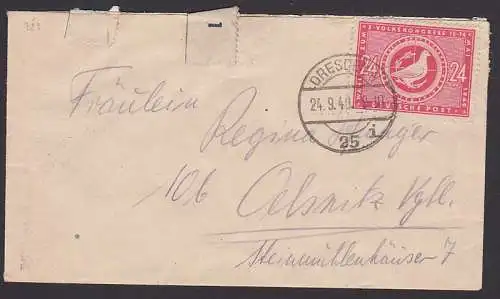 ZUM 3. VOLKSKONGRESS 15-16 MAI 1949
24 24
DEUTSCHE POST
DRESDEN
24.9.49
25 i
Fräulein
Regina
106 Oelsnitz Vgtl.
Steinmühlenhäuser 7